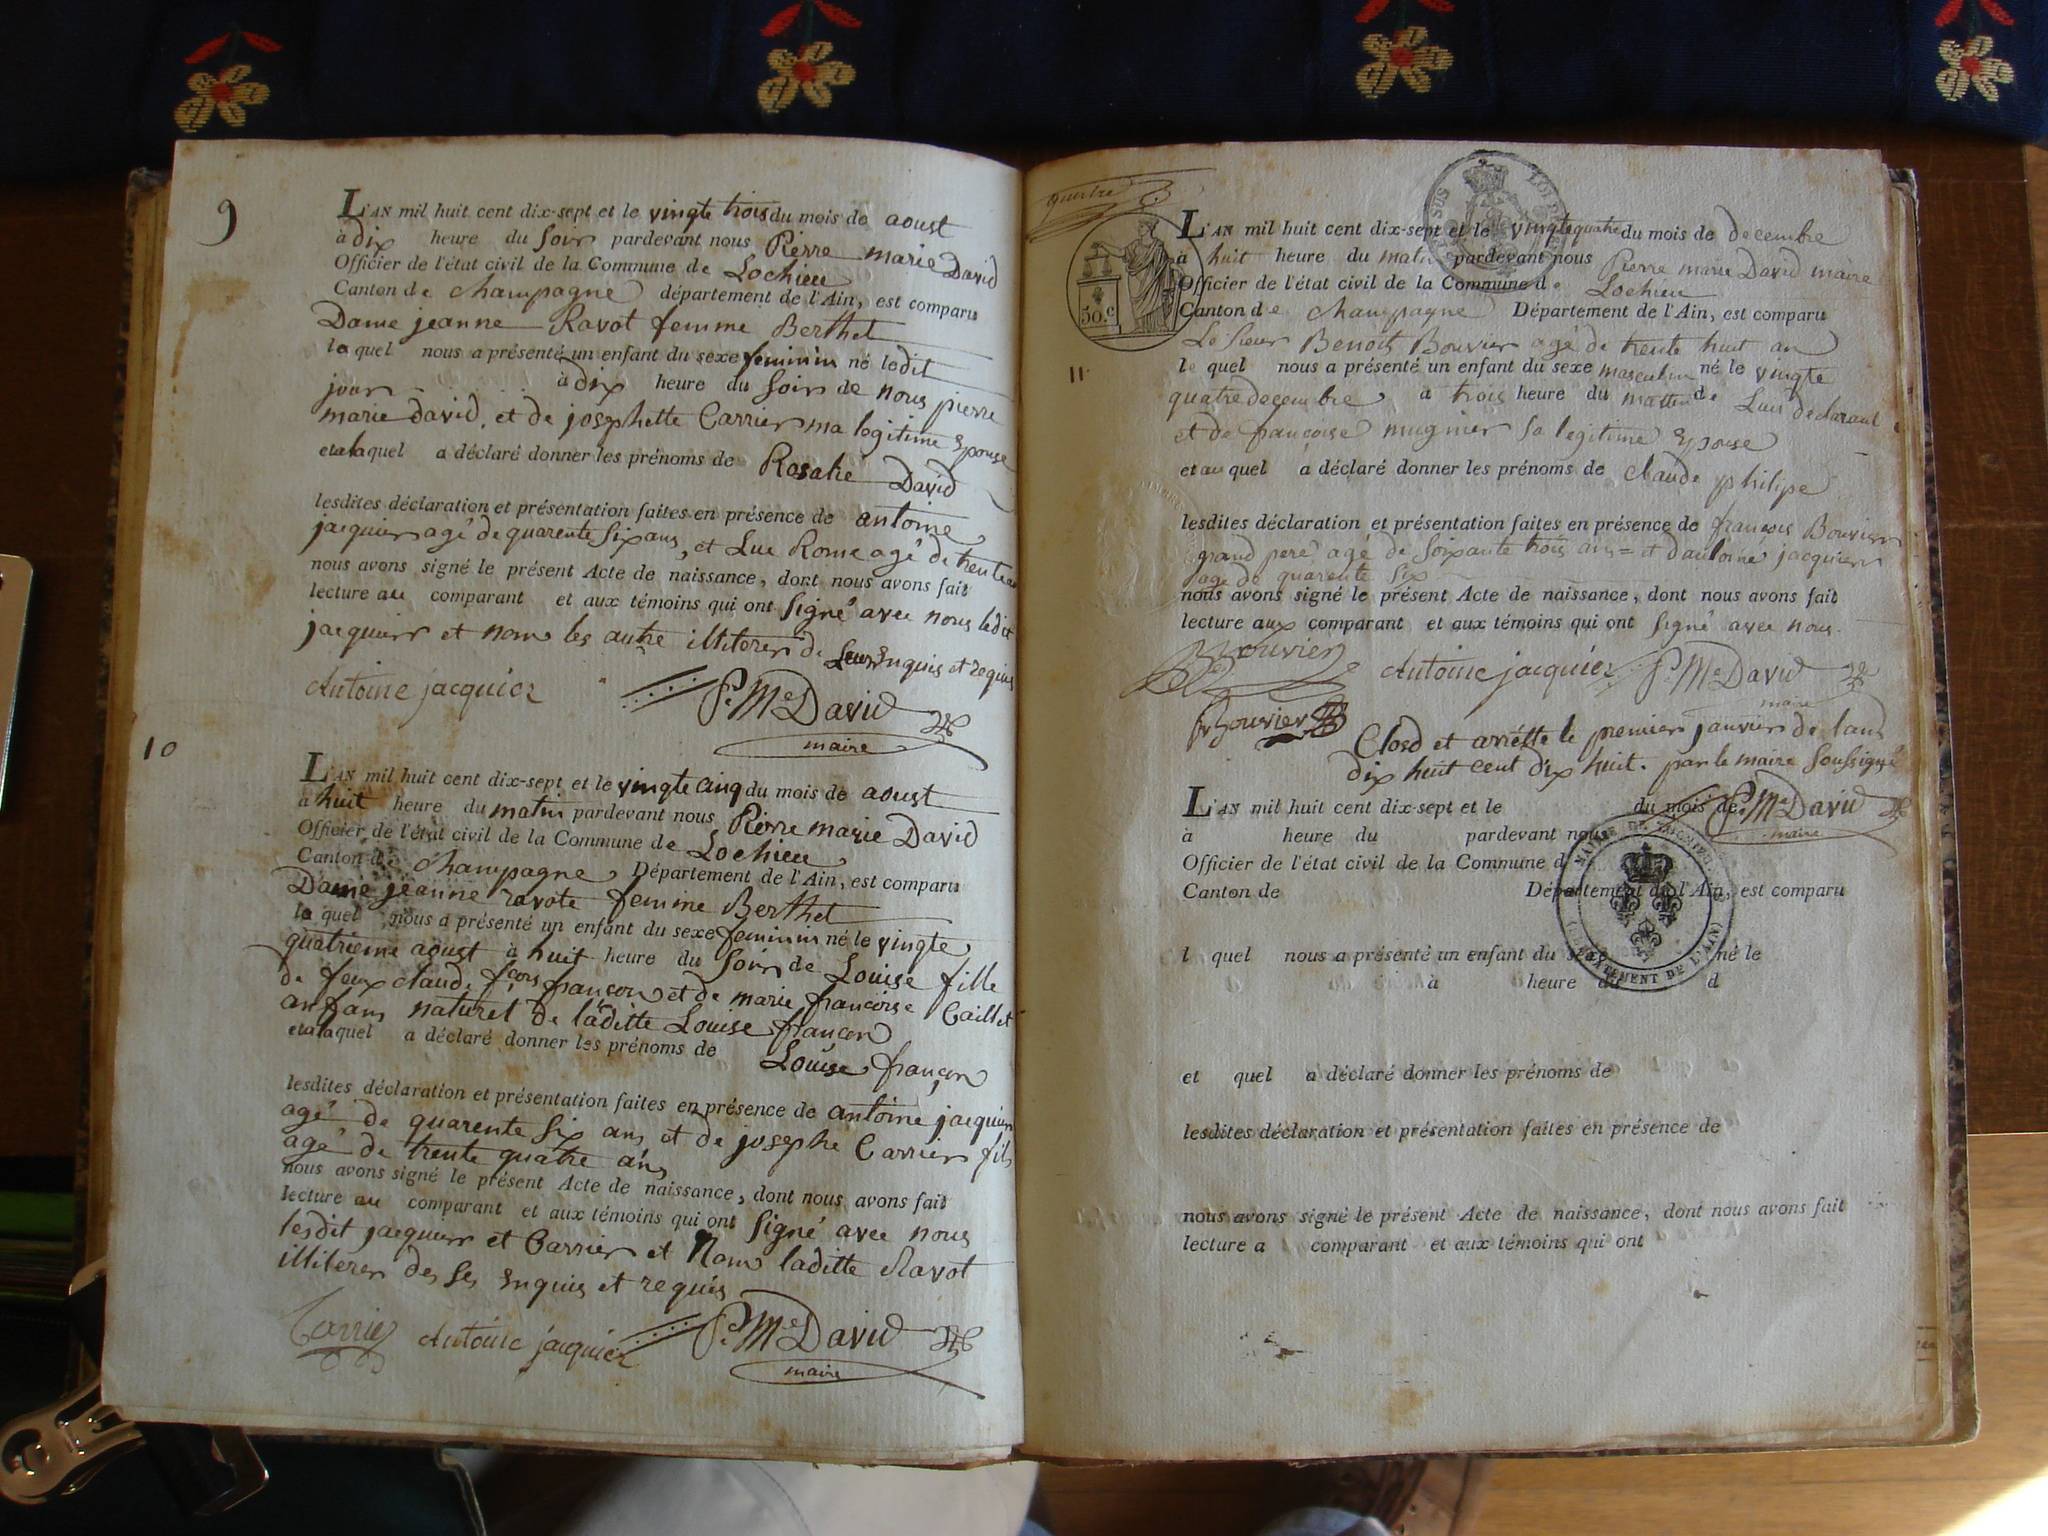 9
L'AN mil huit cent dix-sept et le vingte trois du mois de aoust
à dix heure du soir pardevant nous Pierre marie David
Officier de l'état civil de la Commune de Lochieu
Canton de champagne département de l'Ain, est comparu
Dame jeanne Ravot femme Berthet
laquel nous a présenté un enfant du sexe feminin né le dit
jour à dix heure du soir de nous pierre
marie david, et de josephette Carrier ma legitime Epouse
et a laquel a déclaré donner les prénoms de Rosalie David
lesdites déclaration et présentation faites en présence de antoine
jacquier agé de quarente six ans, et Luc Rome agé de trente
nous avons signé le présent Acte de naissance, dont nous avons fait
lecture au comparant et aux témoins qui ont signé avec nous ledit
jacquier et non les autre illiterer de Leur Enquis et requis
Antoine jacquier P. Me David
maire
10
L'AN mil huit cent dix-sept et le vingte cinq du mois de aoust
à huit heure du matin pardevant nous Pierre marie David
Officier de l'état civil de la Commune de Lochieu
Canton de champagne Département de l'Ain, est comparu
Dame jeanne ravote femme Berthet
laquel nous a présenté un enfant du sexe feminin né le vingte
quatrieme aoust à huit heure du soir de Louise fille
de feux claude fcois françon et de marie francoise Caillet
anfans naturel de laditte Louise françon
et a laquel a déclaré donner les prénoms de Louise françon
lesdites déclaration et présentation faites en présence de antoine jacquier
agé de quarente six ans et de josephe Carrier fils
agé de trente quatre ans
nous avons signé le présent Acte de naissance, dont nous avons fait
lecture au comparant et aux témoins qui ont signé avec nous
lesdit jacquier et Carrier et Non laditte Ravot
illiterer des ses Enquis et requis
Carrier Antoine jacquier P. Me David
maire
50.c
L'AN mil huit cent dix-sept et le vingte quatre du mois de decembre
à huit heure du matin pardevant nous Pierre marie David maire
Officier de l'état civil de la Commune de Lochieu
Canton de champagne Département de l'Ain, est comparu
Le sieur Benoit Bouvier agé de trente huit an
11
le quel nous a présenté un enfant du sexe masculin né le vingte
quatre decembre à trois heure du matten de Lui declarant
et de françoise mugnier sa legitime Epouse
et au quel a déclaré donner les prénoms de claude philipe
lesdites déclaration et présentation faites en présence de françois Bouvier
grand pere agé de soixante trois ans = et d'antoine jacquier
age de quarente six
nous avons signé le présent Acte de naissance, dont nous avons fait
lecture aux comparant et aux témoins qui ont signé avec nous.
Bouvier Antoine jacquier P. Me David
maire
fr bouvier
Closd et arrétte le premier janvier de lan
dix huit cent dix huit. par le maire soussigné
P. Me David
maire
L'AN mil huit cent dix-sept et le du mois de
à heure du pardevant nous
Officier de l'état civil de la Commune d
Canton de Département de l'Ain, est comparu
l quel nous a présenté un enfant du sexe né le
à heure du d
et quel a déclaré donner les prénoms de
lesdites déclaration et présentation faites en présence de
nous avons signé le présent Acte de naissance, dont nous avons fait
lecture a comparant et aux témoins qui ont